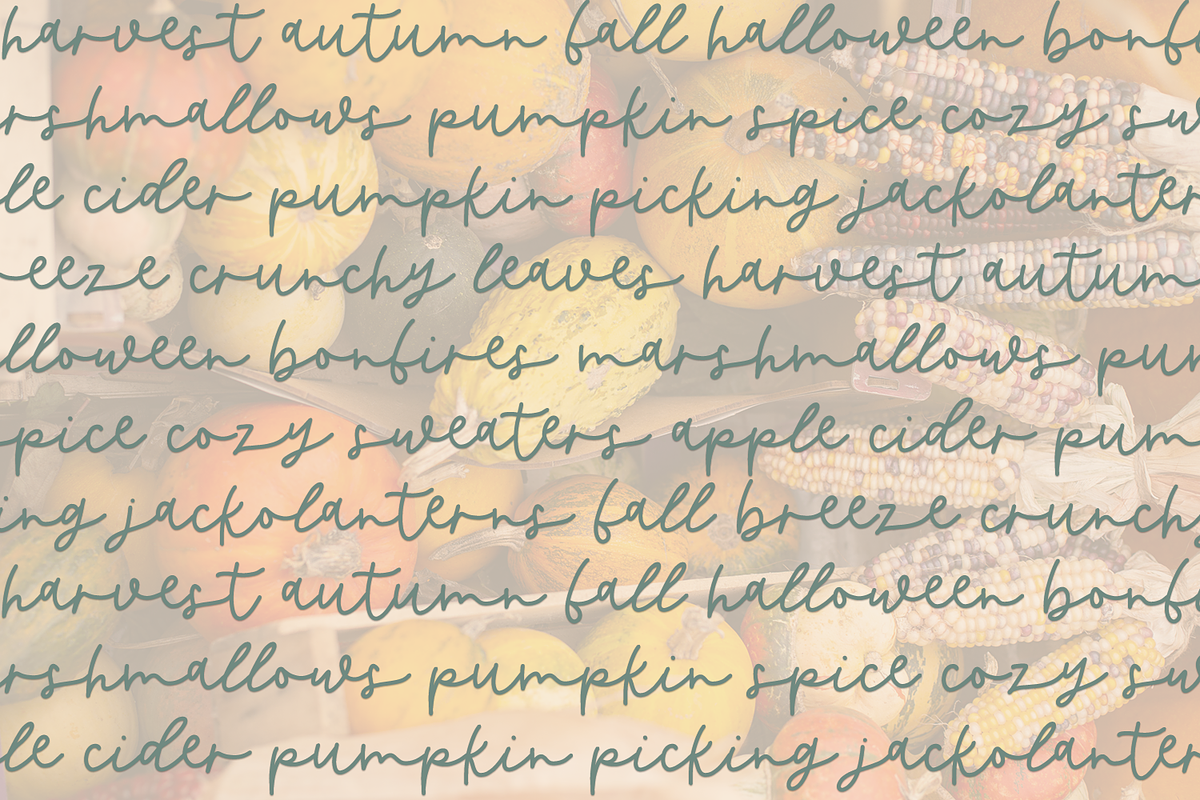 harvest autumn fall halloween bonfi
rshmallows pumpkin spice cozy sw
le cider pumpkin picking jackolanter
eeze crunchy leaves harvest autum
lloween bonfires marshmallows pum
spice cozy sweaters apple cider pum
ing jackolanterns fall breeze crunchy
harvest autumn fall halloween bonfi
rshmallows pumpkin spice cozy sw
le cider pumpkin picking jackolanter